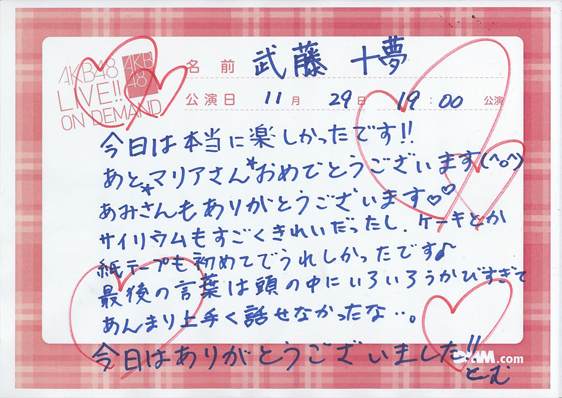 AKB48
LIVE!!
ON DEMAND
AKB
48
名前 武藤 十夢
公演日 11月 29日 19:00 公演
今日は本当に楽しかったです!!
あと*マリアさん*おめでとうございます(^o^)
あみさんもありがとうございます♡♡
サイリウムもすごくきれいだったし、ケーキとか
紙テープも初めてでうれしかったです♪
最後の言葉は頭の中にいろいろうかびすぎて
あんまり上手く話せなかったな…。
今日はありがとうございました!!
.com
とむ